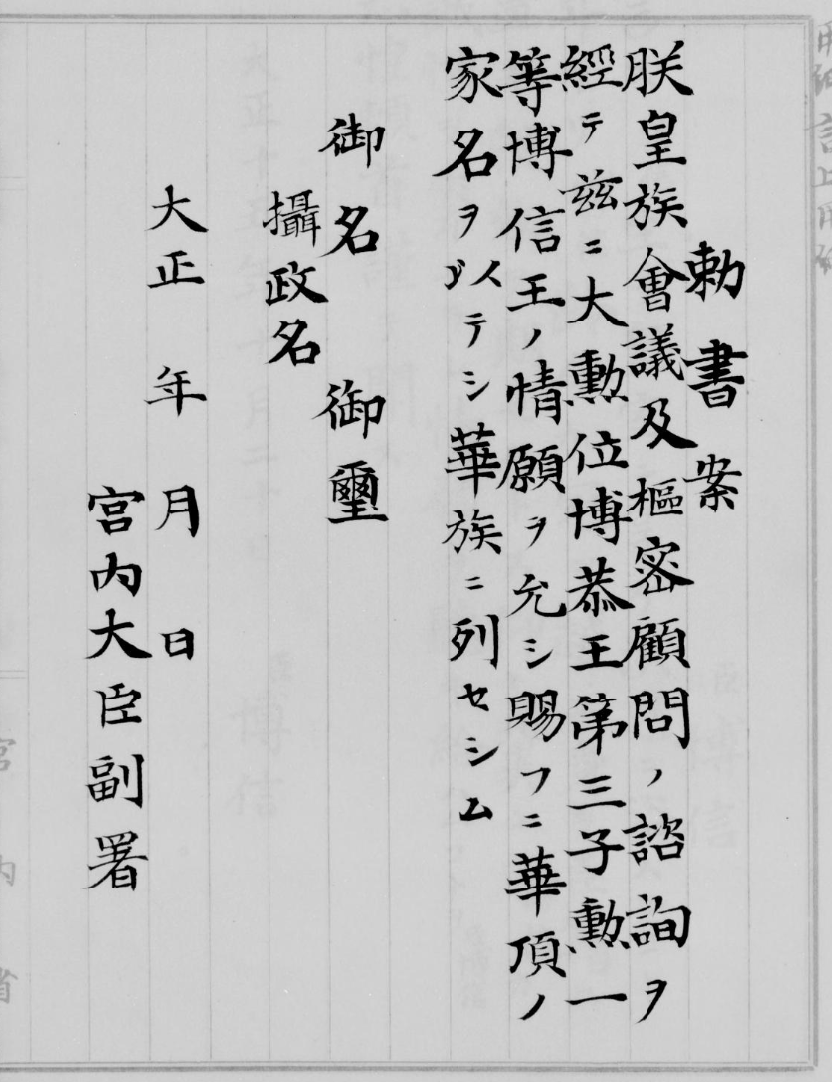 勅書案
朕皇族會議及樞密顧問ノ諮詢ヲ
經テ茲ニ大勲位博恭王第三子勲一
等博信王ノ情願ヲ允シ賜フニ華頂ノ
家名ヲ以テシ華族ニ列セシム
御名御璽
攝政名
大正年月日
宮内大臣副署
宮内省